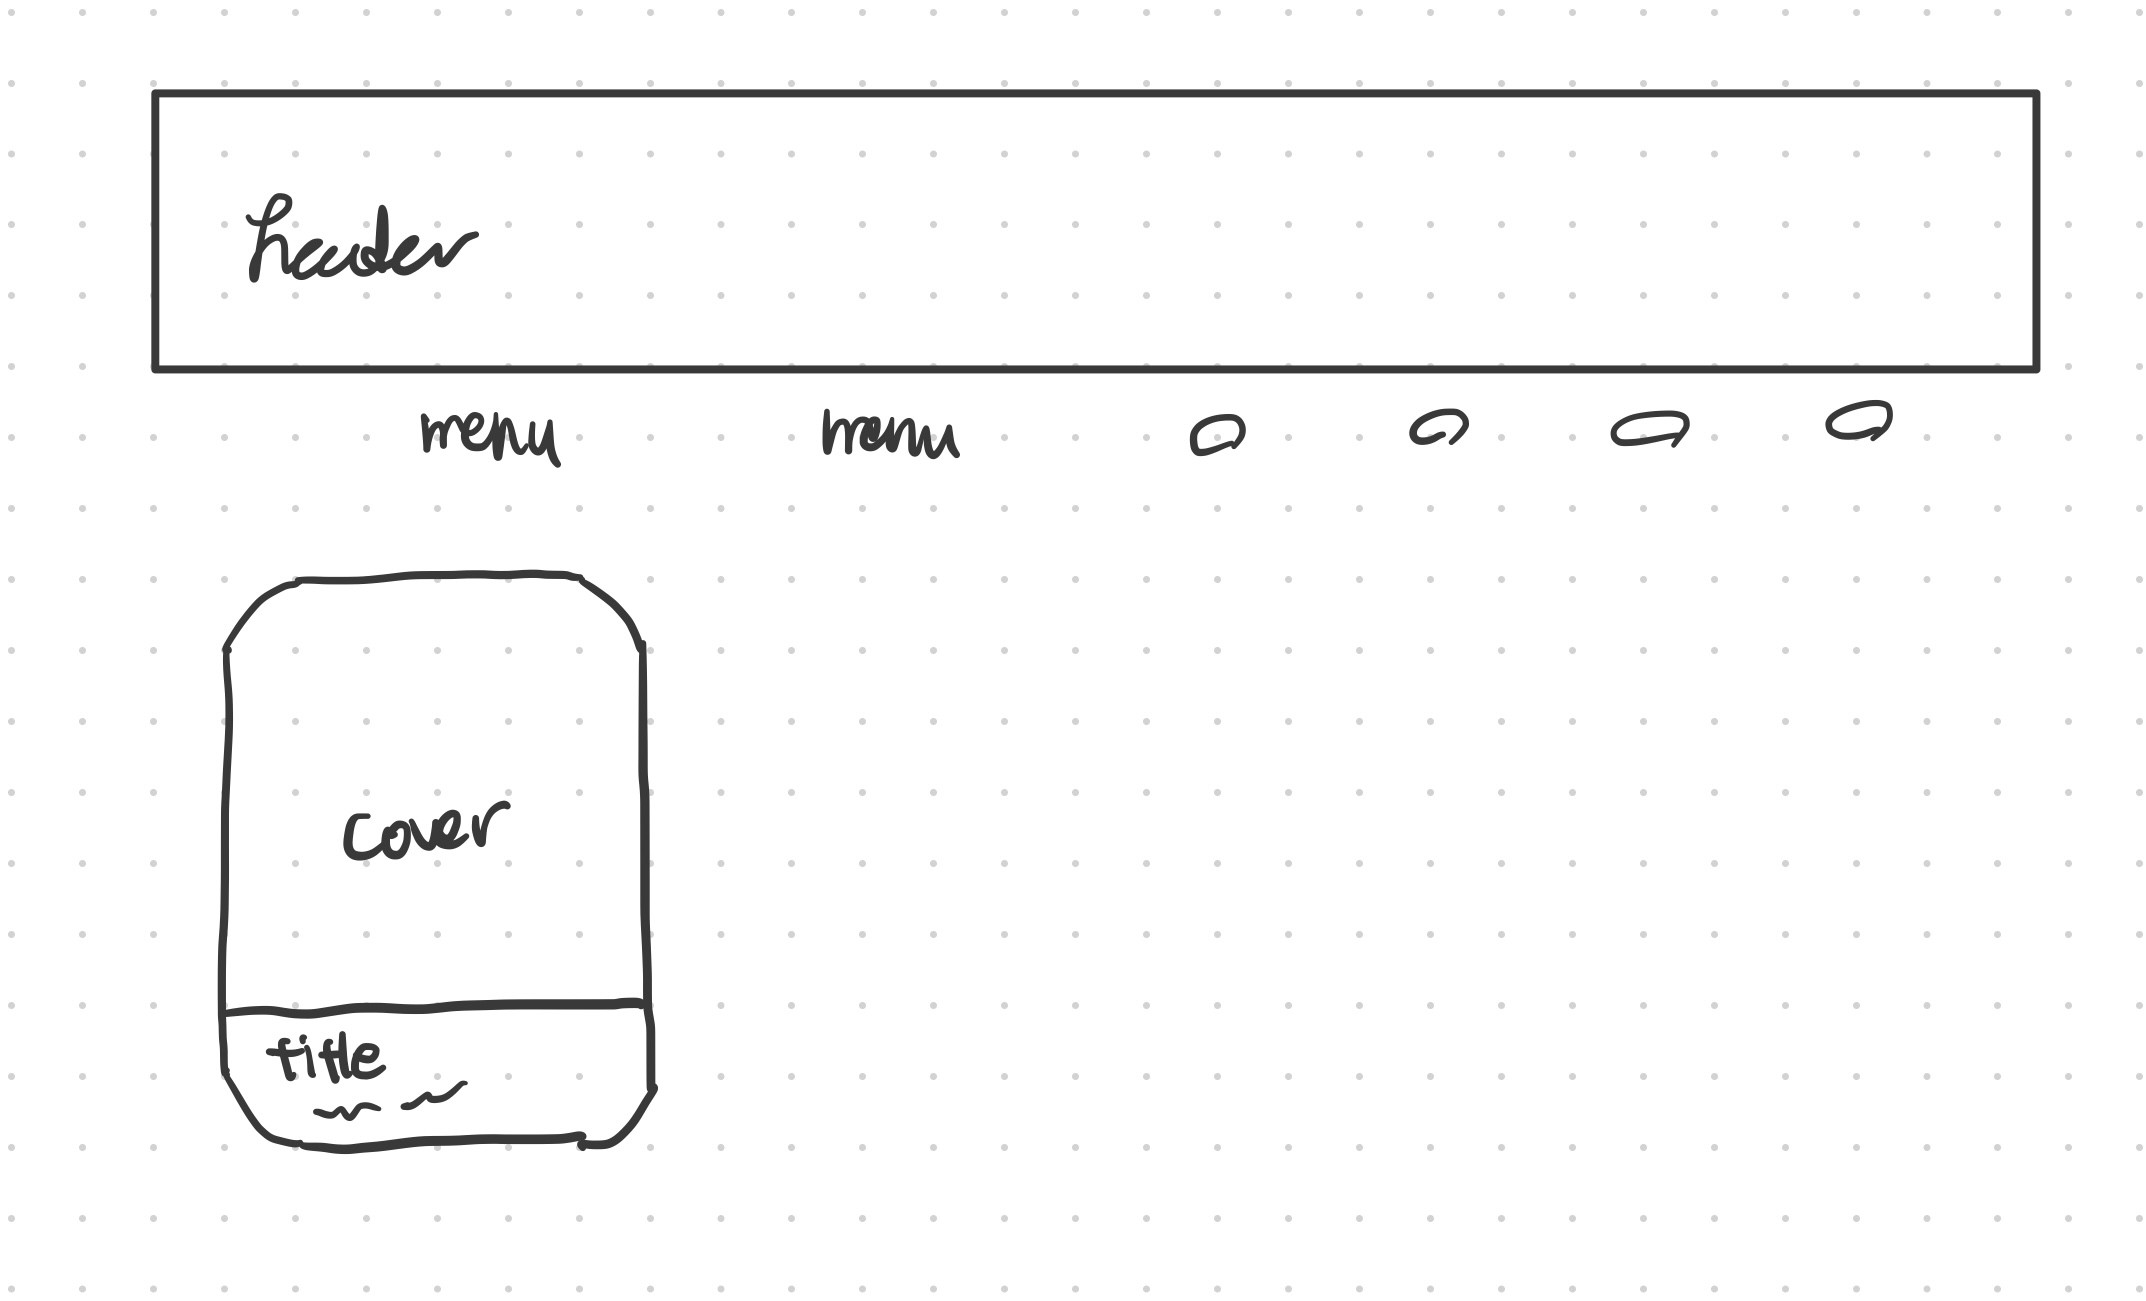 header
menu menu
cover
title